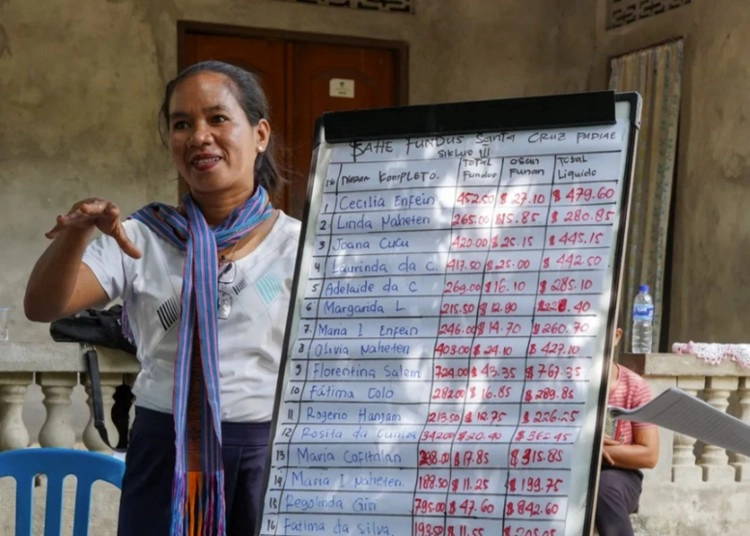 FAHE FUNDUS Santa CRUZ FUDIAE
SIKLUO III
No Naran Kompleto. Total Fundus Osan Funan Total Liquido
1 Cecilia Enfein 452.50 $ 27.10 $ 479.60
2 Linda Naheten 265.00 $ 15.85 $ 280.85
3 Joana Cucu 420.00 $ 25.15 $ 445.15
4 Laurinda da C. 417.50 $ 25.00 $ 442.50
5 Adelaide da C 269.00 $ 16.10 $ 285.10
6 Margarida L 215.50 $ 12.90 $ 228.40
7 Maria I Enfein 246.00 $ 14.70 $ 260.70
8 Olivia Naheten 403.00 $ 24.10 $ 427.10
9 Florentina Salem 724.00 $ 43.35 $ 767.35
10 Fatima Colo 282.00 $ 16.85 $ 289.85
11 Rogerio Hangam 213.50 $ 12.75 $ 226.25
12 Rosita da 342.05 $ 20.40 $ 362.45
13 Maria Cofitalan 298.00 $ 17.85 $ 315.85
14 Maria I Naheten 188.50 $ 11.25 $ 199.75
15 Regolinda Gisi 795.00 $ 47.60 $ 842.60
16 Fatima da Silva. 193.50 $ 11.55 $ 205.05